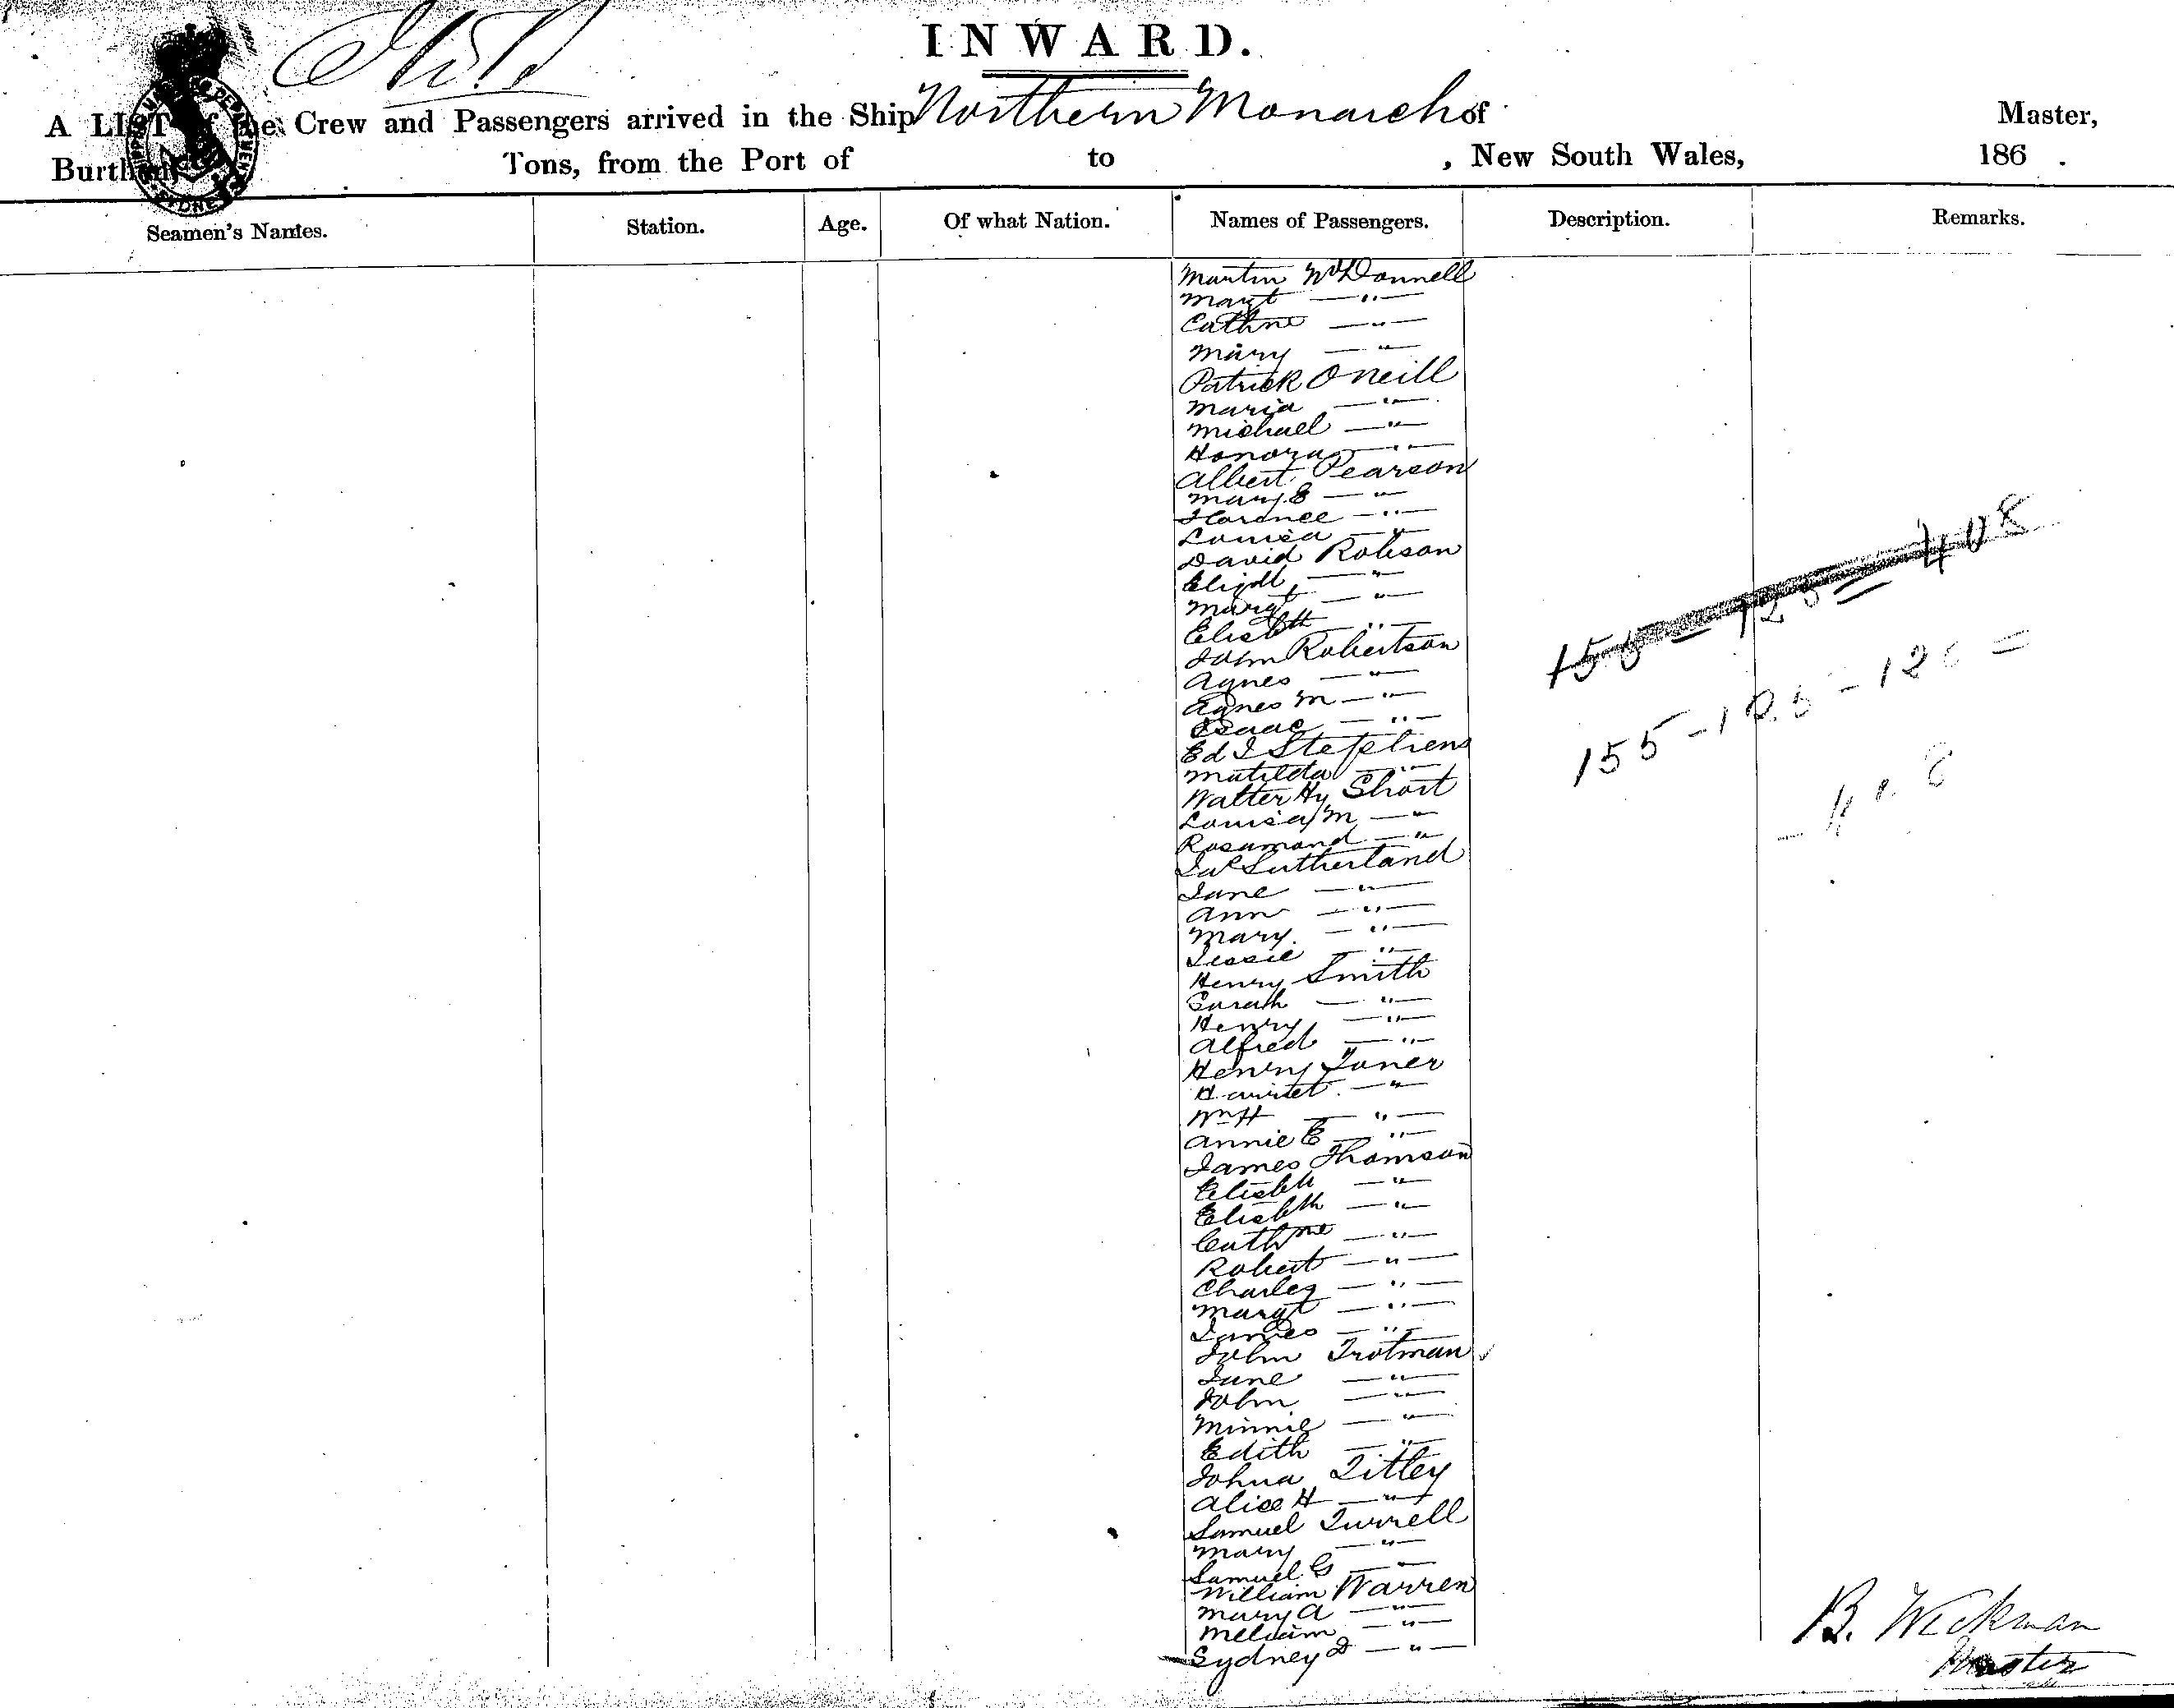 INWARD.
A LIST of the Crew and Passengers arrived in the Ship Northern Monarch of Master,
Burthen Tons, from the Port of to , New South Wales, 186 .
Seamen's Names. Station. Age. Of what Nation. Names of Passengers. Description. Remarks.
Martin McDonnell
Margt — " —
Cathne — " —
Mary — " —
Patrick O Neill
Maria — " —
Michael — " —
Honora — " —
Albert Pearson
Mary E — " —
Florence — " —
Louisa — " —
David Robson
Elizth — " —
Margt — " —
Elisbth — " —
John Robertson
Agnes — " —
Agnes M — " —
Isaac — " —
Ed J Stephens
Matilda — " —
Walter Hy Short
Louisa M — " —
Rosamond — " —
Jas Sutherland
Jane — " —
Ann — " —
Mary — " —
Jessie — " —
Henry Smith
Sarah — " —
Henry — " —
Alfred — " —
Henry Toner
Harriet — " —
Wm H — " —
Annie E — " —
James Thomson
Elisbth — " —
Elisbth — " —
Cathne — " —
Robert — " —
Charles — " —
Margt — " —
James — " —
John Trotman
Jane — " —
John — " —
Minnie — " —
Edith — " —
Johua Titley
Alice H — " —
Samuel Turrell
Mary — " —
Samuel G — " —
William Warren
Mary A — " —
William — " —
Sydney D — " —
B. Wickman
Master